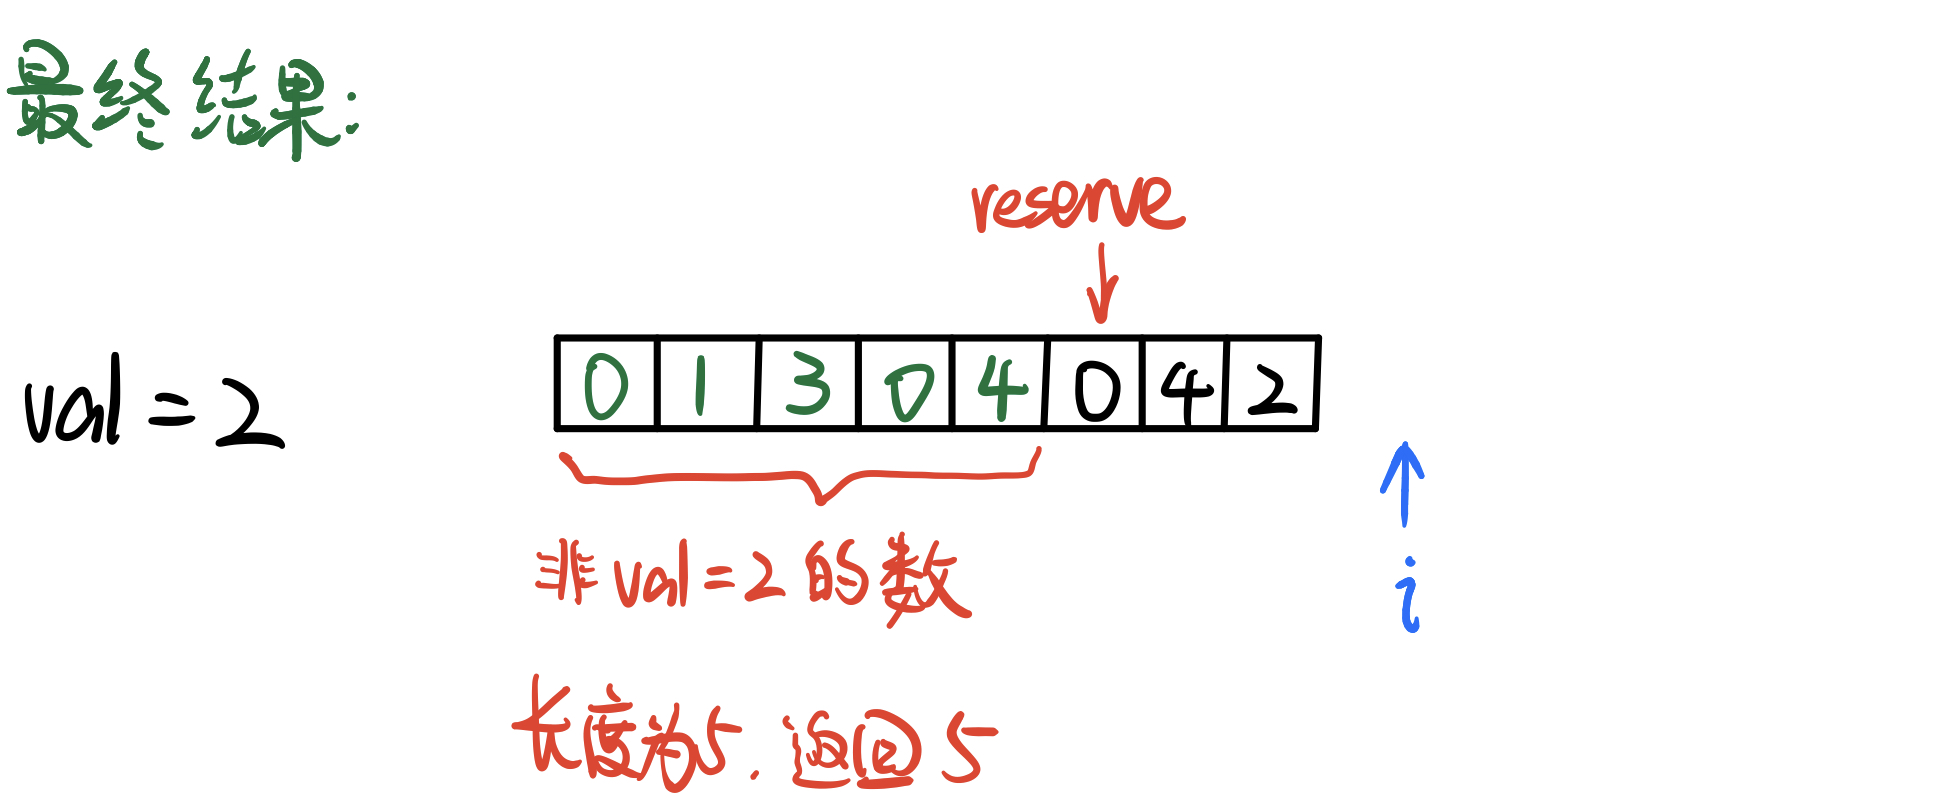 最终结果:
reserve
val = 2
0 1 3 0 4 0 4 2
非 val = 2 的数
i
长度为5. 返回 5